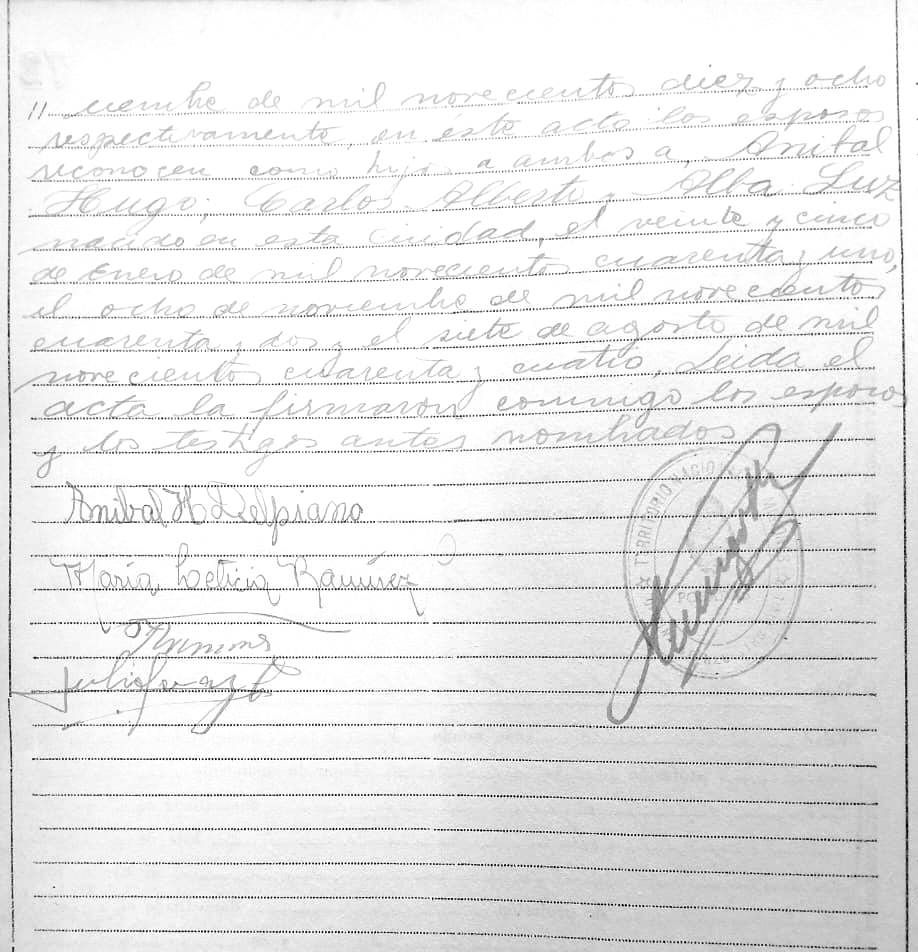 // ciembre de mil novecientos diez y ocho
respectivamente, en éste acto los esposos
reconocen como hijo a ambos a, Anibal
Hugo; Carlos Alberto y Alba Luz
nacido en esta ciudad, el veinte y cinco
de Enero de mil novecientos cuarenta y uno,
el ocho de noviembre de mil novecientos
cuarenta y dos y el siete de agosto de mil
novecientos cuarenta y cuatro, Leida el
acta la firmaron conmigo los esposos
y los testigos antes nombrados
Anibal H Delpiano
María Leticia Ramírez
TERRITORIO NACIO